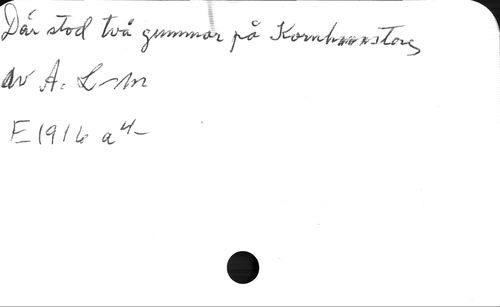 Där stod två gummor på Kornhamnstorg
av A. L-m
E 1916 a 4-